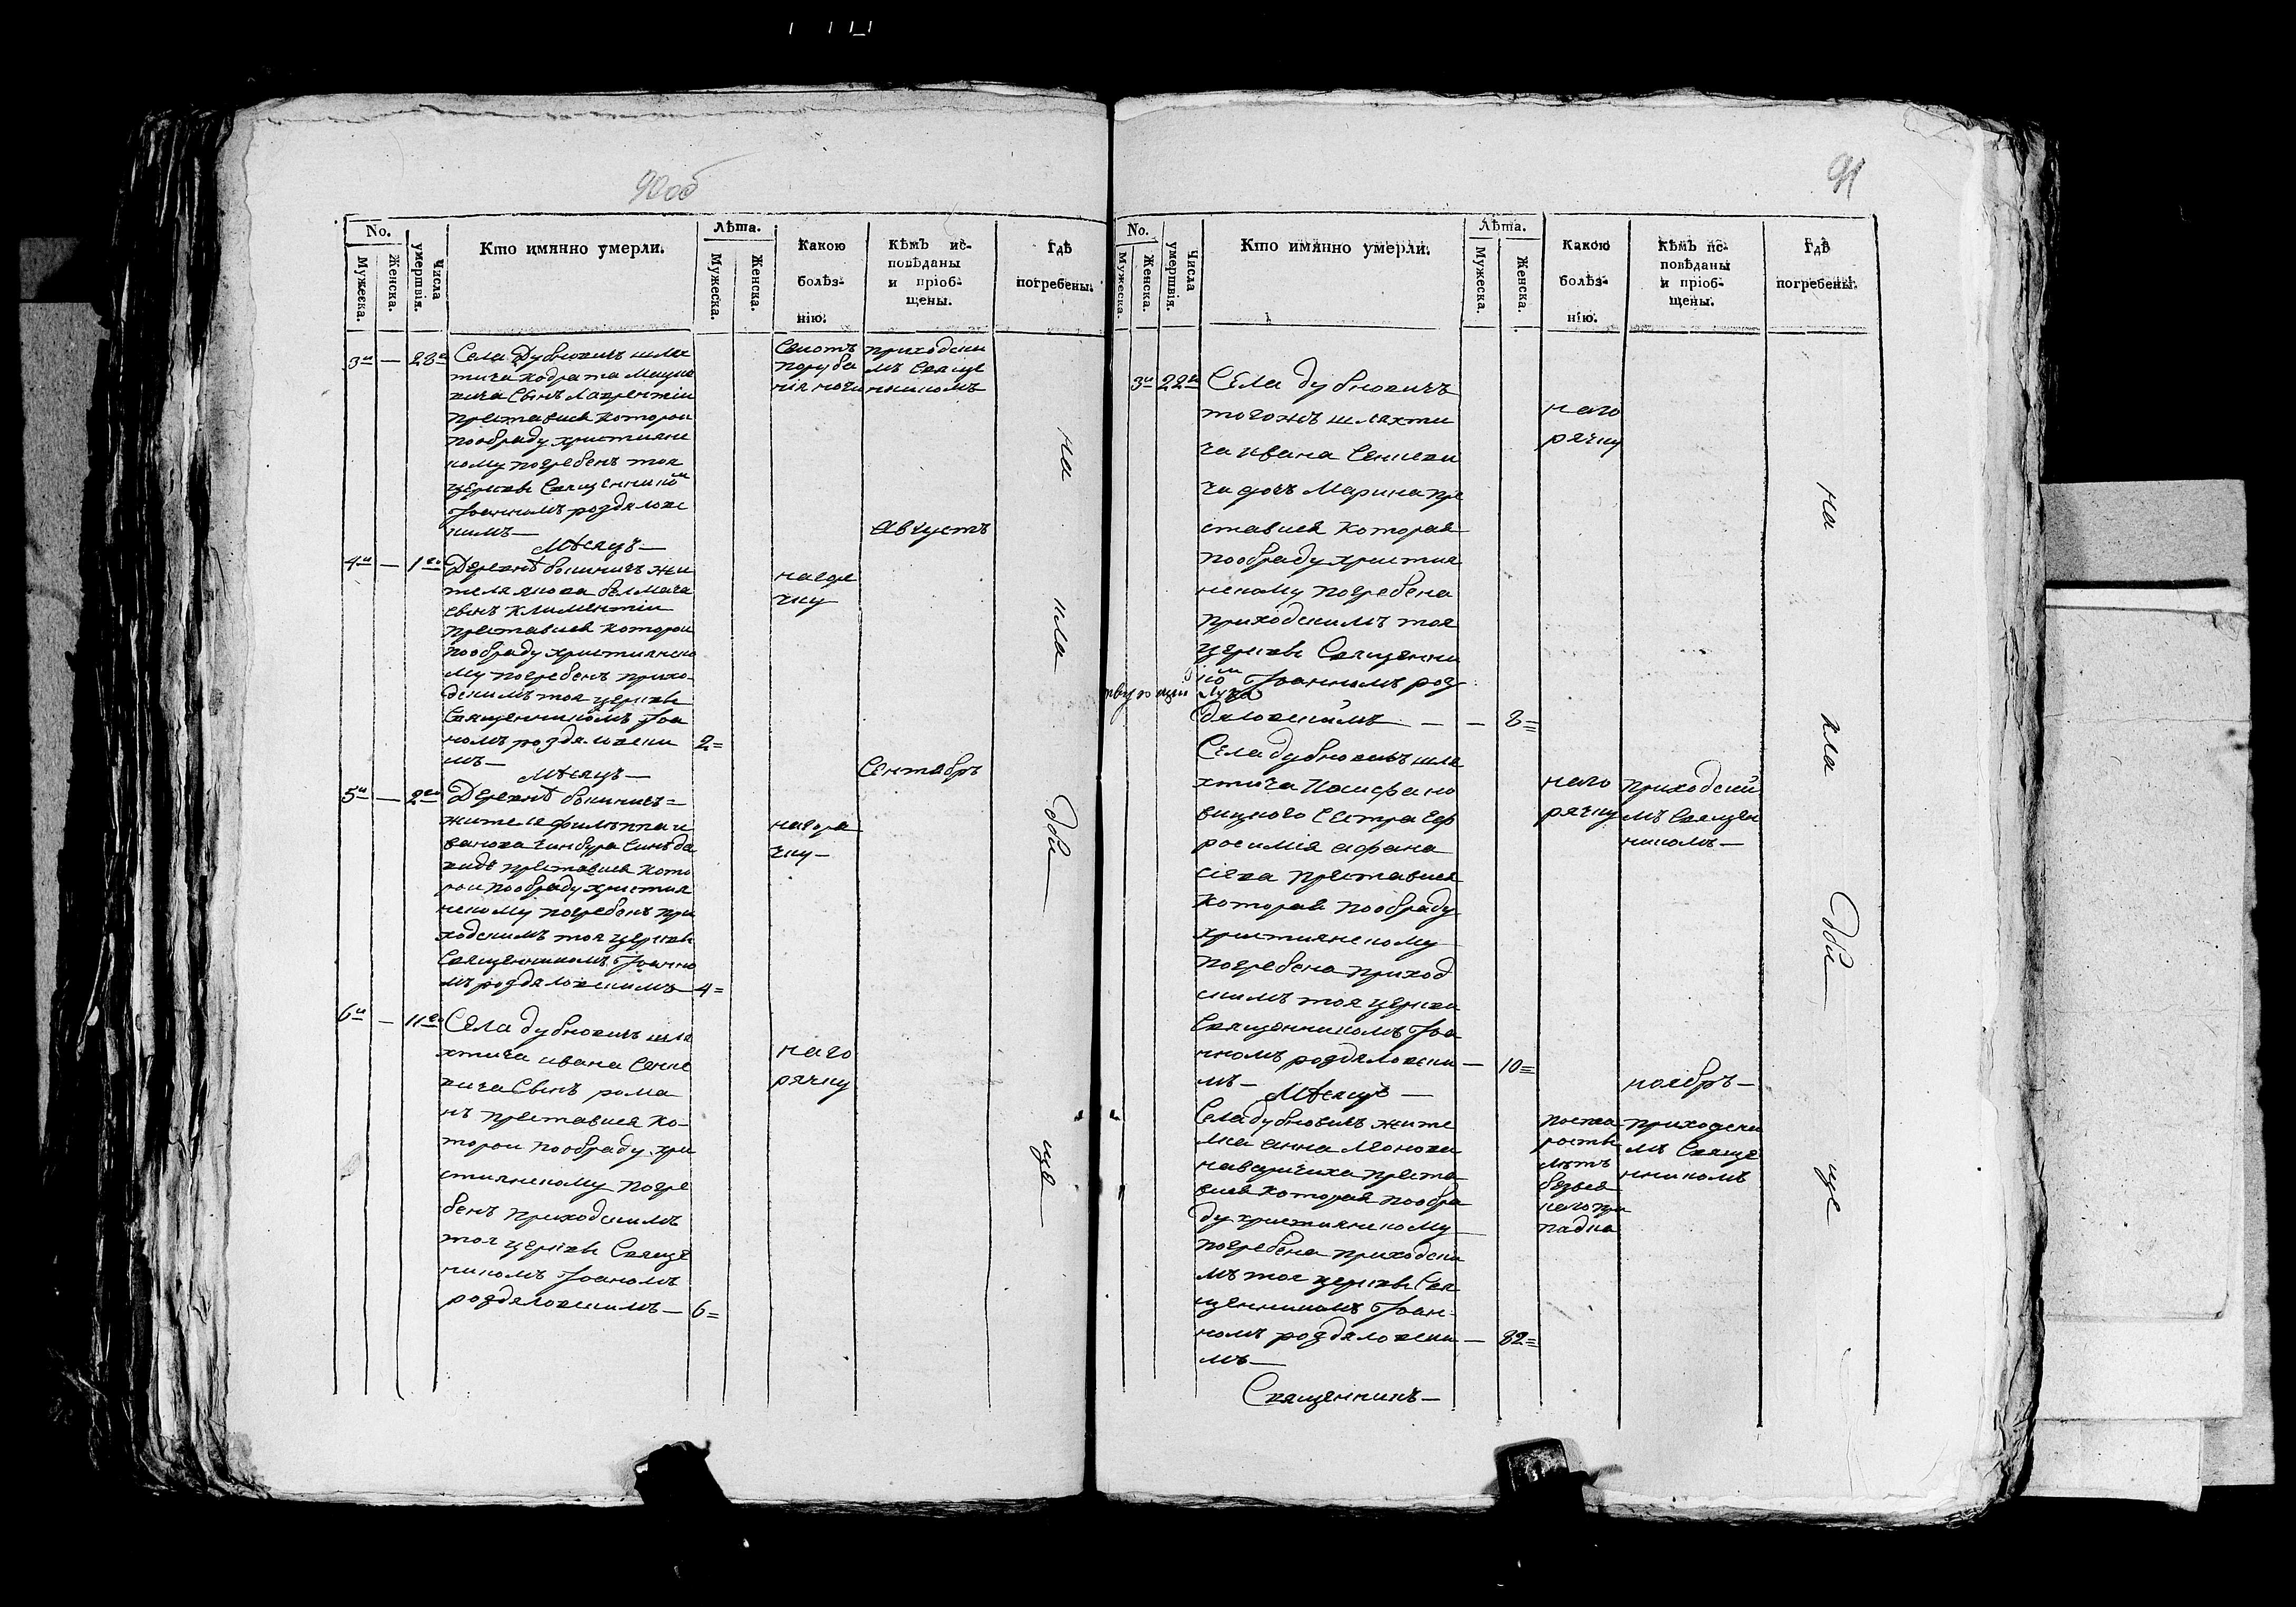 90об
No.
Мужеска.
Женска.
Числа умертвія.
Кто имянно умерли.
Лѣта.
Мужеска.
Женска.
Какою болѣз-нію.
Кѣмъ ис-повѣданы и пріоб-щены.
Гдѣ погребены.
3й — 28
Села Дубновичъ шлях
тича Кодрата
вича Сынъ Лаврентіи
преставися которои
пообряду християнс
кому погребенъ тоя
церкви Священником
Іоанномъ роздяловс
кимъ —
приходски
мъ Свяще
нникомъ
Мѣсяцъ — Августъ
4й — 1го
Деревнѣ жи
теля
сынъ Климентіи
преставися которои
пообряду християнско
му погребенъ прихо-
дскимъ тоя церкви
Священникомъ Іоа
номъ роздяловски
мъ — 2=
нагоря
чку
Мѣсяцъ — Сентябръ
5й — 2го
Деревнѣ
жителя филиппа и
ванова Синъ да
видъ преставися кото
рои пообряду християн
нскому погребенъ при
ходскимъ тоя церкви
Священникомъ Іоанно
мъ роздяловскимъ — 4=
нагоря
чку —
6й — 11го
Села дубновичъ шля
хтича ивана Сенке
вича Сынъ рома
нъ преставися ко-
торои пообряду хри
стиянскому погре
бенъ приходскимъ
тоя церкви Свяще
никомъ Іоаномъ
роздяловскимъ — 6=
наго
рячку
на кла дби ще
91
No.
Мужеска.
Женска.
Числа умертвія.
Кто имянно умерли.
Лѣта.
Мужеска.
Женска.
Какою болѣз-нію.
Кѣмъ ис-повѣданы и пріоб-щены.
Гдѣ погребены.
3й 22го
Села дубновичъ
тогожъ шляхти
ча ивана Сенкеви
ча дочъ Марина пре
ставися которая
пообряду християн
нскому погребена
приходскимъ тоя
церкви Священни
ком Іоанномъ роз
дяловскимъ — — 8=
наго
рячку
Села дубновичъ шля
хтича
Сестра Еф
росимія афана
сіева преставися
которая пообряду
християнскому
погребена приход
скимъ тоя церкви
Священникомъ Іоа
нномъ роздяловски — 10=
мъ —
наго
рячку
приходский
мъ Священ
никомъ —
Мѣсяцъ — ноябръ —
Села дубновичъ жите
лка анна
преста
вися которая пообря
ду християнскому
погребена приходски
мъ тоя церкви Свя
щенникомъ Іоан-
номъ роздяловски — 82=
мъ —
поста
рости
лѣтъ
безвся
кого при
падка
приходски
мъ Свяще
нникомъ
Священникъ —
на кла дби ще